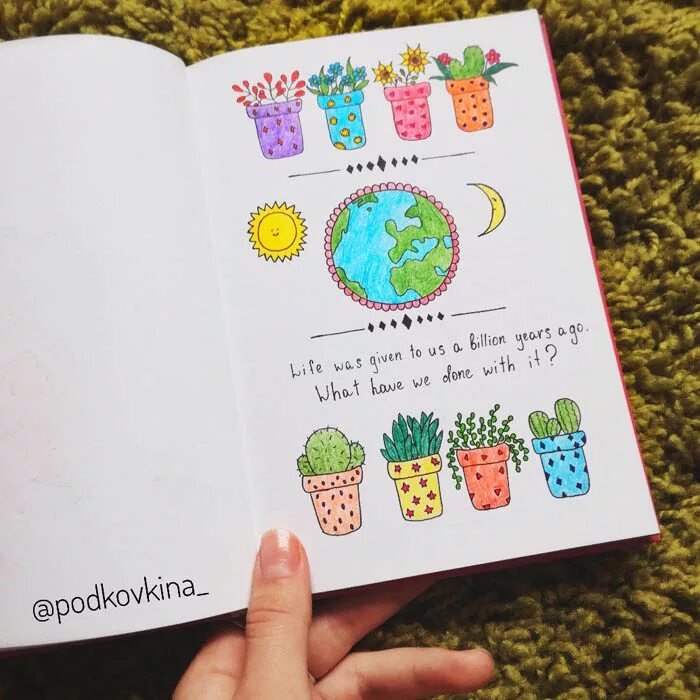 Life was given to us a billion years ago.
What have we done with it?
@podkovkina_